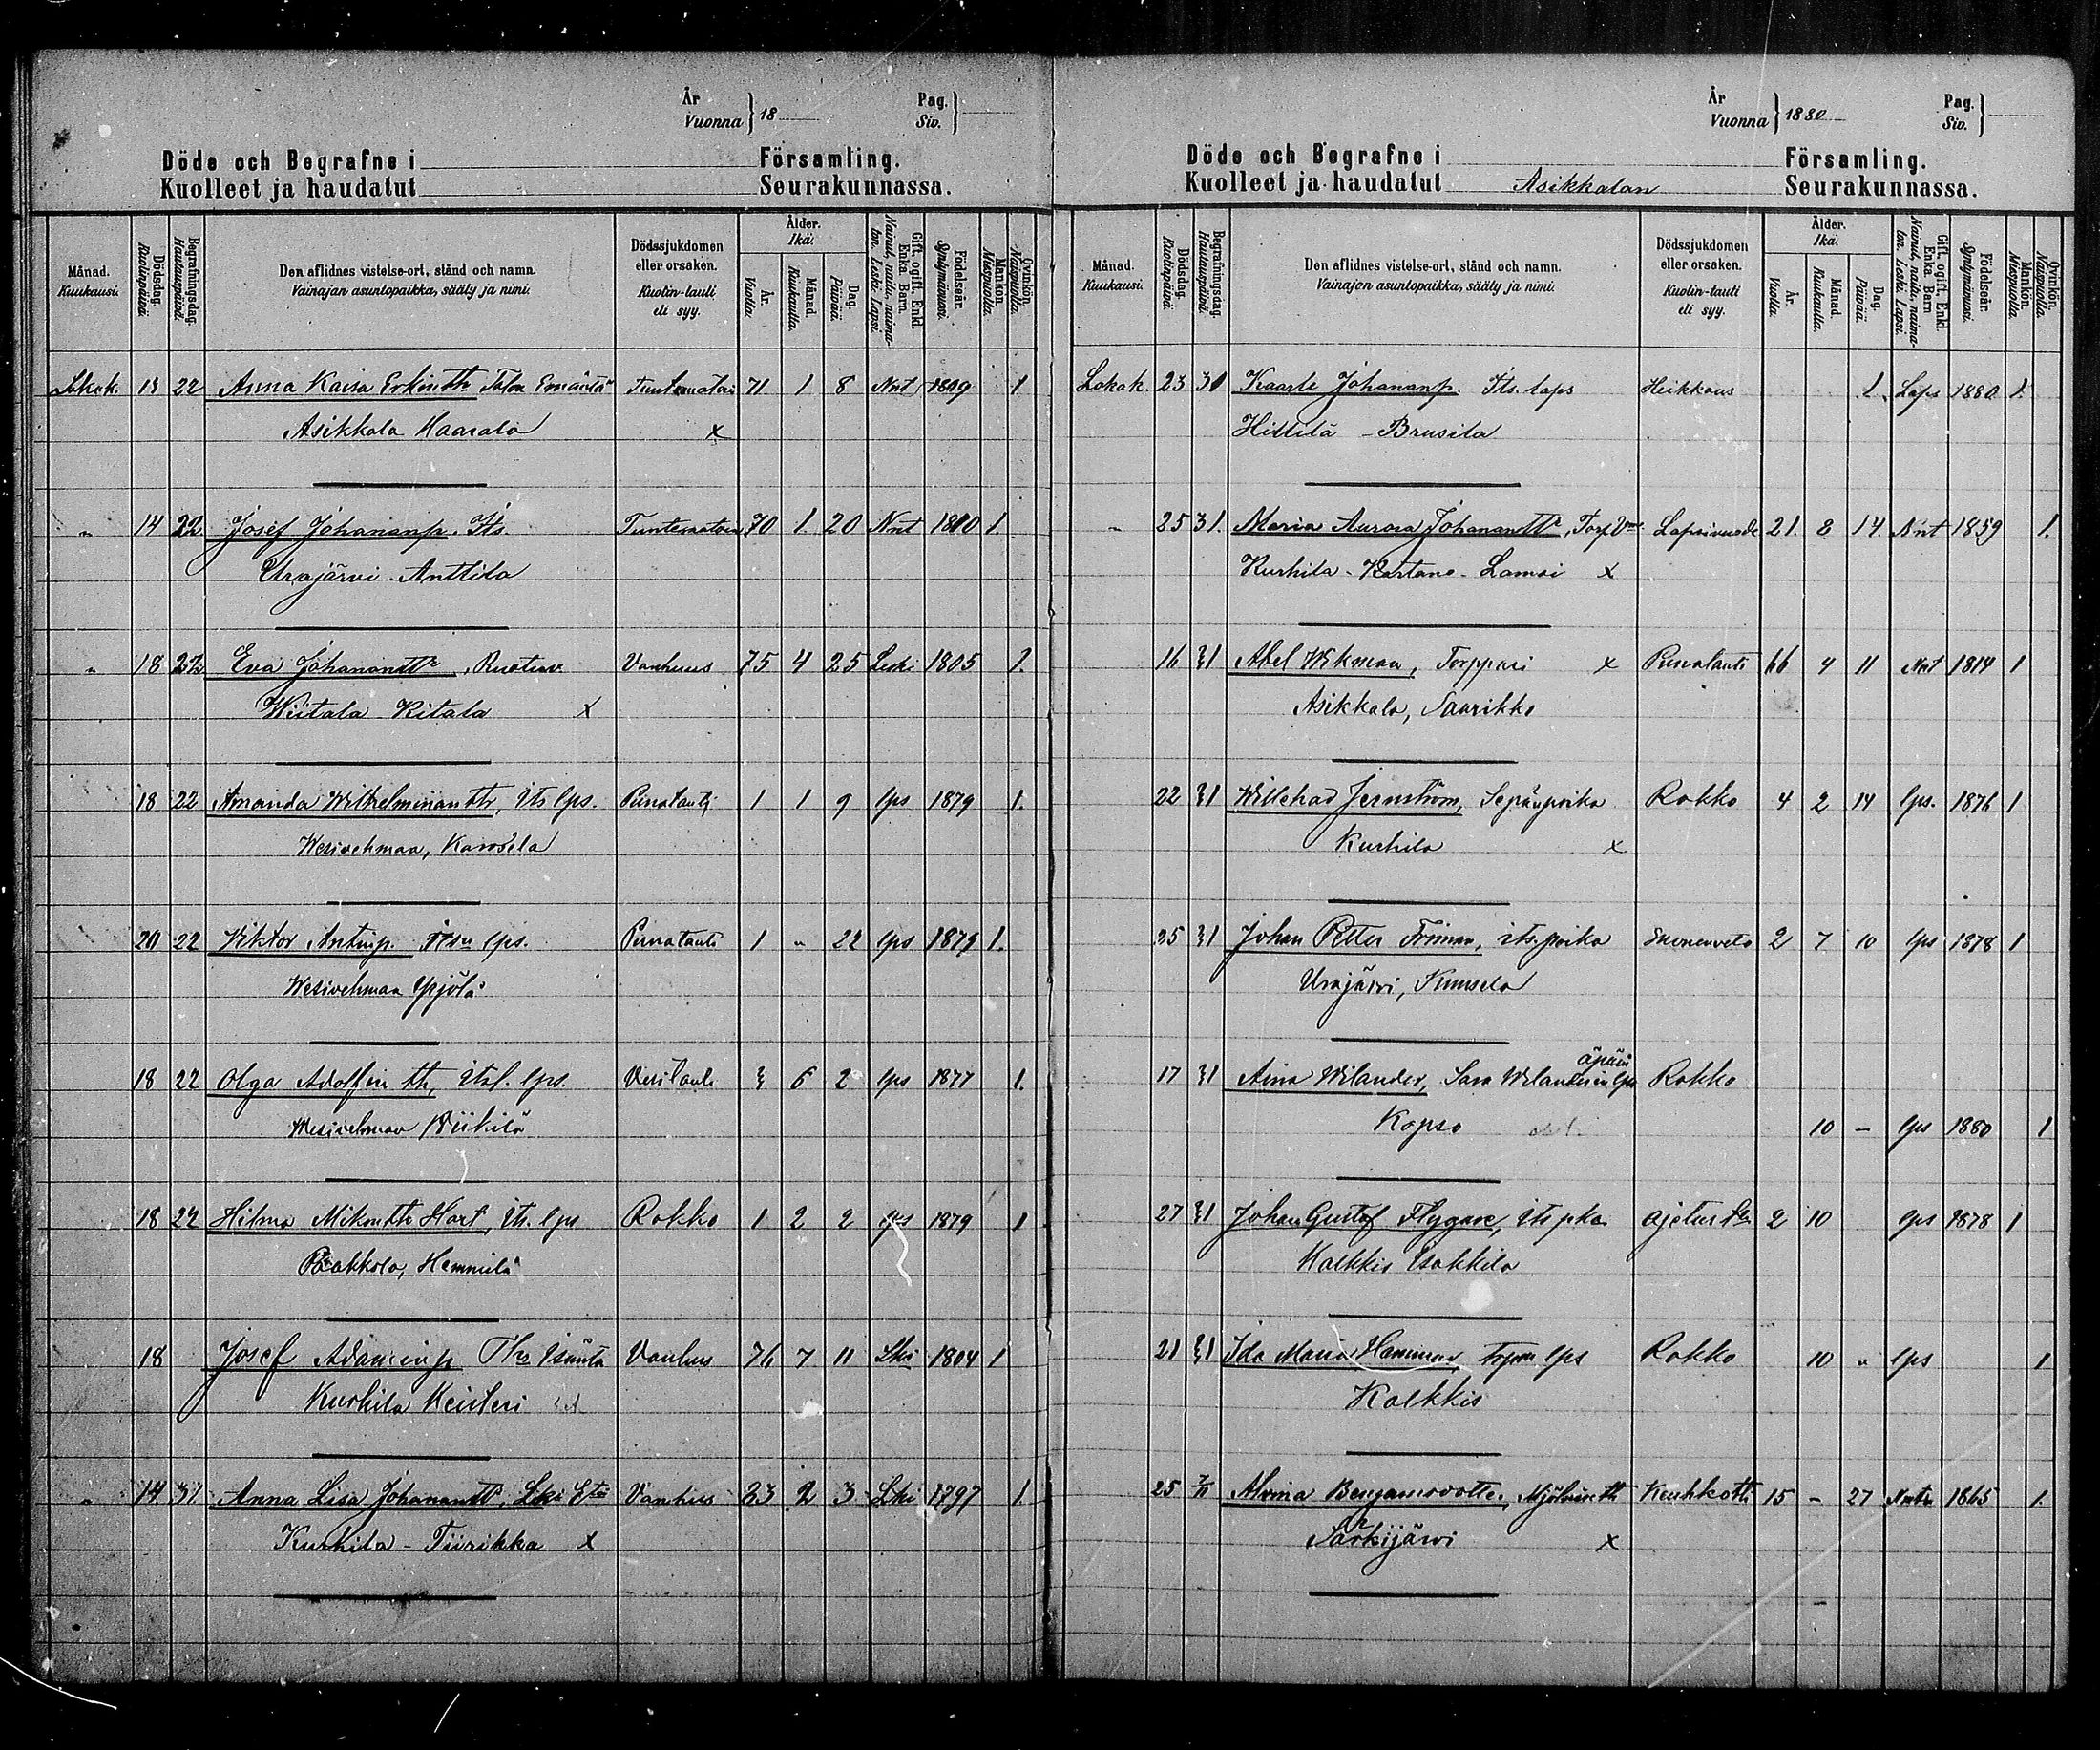 År
Vuonna } 18
Pag.
Siv. }
Döde och Begrafne i Församling.
Kuolleet ja haudatut Seurakunnassa.
Månad.
Kuukausi.
Dödsdag.
Kuolinpäivä.
Begrafningsdag.
Hautauspäivä.
Den aflidnes vistelse-ort, stånd och namn.
Vainajan asuntopaikka, sääty ja nimi.
Dödssjukdomen
eller orsaken.
Kuolin-tauti
eli syy.
Ålder.
Ikä.
År.
Vuotta.
Månad.
Kuukautta.
Dag.
Päivää.
Gift, ogift, Enkl.
Enka. Barn.
Nainut, naitu, naima-
ton. Leski. Lapsi.
Födelseår.
Syntymävuosi.
Mankön.
Miespuolta.
Qvinkön.
Naispuolta.
Lokak. 13 22 Anna Kaisa Erkintr Talon Emäntä Tuntematoin 71 1 8 Nnt 1809 1
Asikkala Haarala x
" 14 22 Josef Johananp. Its. Tuntematoin 70 1. 20 Nnt 1810 1.
Urajärvi Anttila
" 18 22 Eva Johanantr, Vanhuus 75 4 25 Leski 1805 1.
Wiitala Ritala x
18 22 Amanda Wilhelminantr, Its lps. Punatauti 1 1 9 lps 1879 1.
Wesivehmaa,
20 22 Viktor Antinp. lps. Punatauti 1 " 22 lps 1879 1.
Wesivehmaa Ypjölä
18 22 Olga Adolfin tr, Itsl. lps. Veritauti 3 6 2 lps 1877 1.
Wesivehmaa
18 22 Hilma Mikontr Hart, Its. lps Rokko 1 2 2 lps 1879 1
Paakkola, Hemmilä
18 Josef Adaminp Isäntä Vanhus 76 7 11 Lki 1804 1
Kurhila Keisteri
" 14 31 Anna Lisa Johanantr, Lki Vanhus 83 2 3 Lki 1797 1
Kurhila - Tiirikka x
År
Vuonna } 1880
Pag.
Siv. }
Döde och Begrafne i Församling.
Kuolleet ja haudatut Asikkalan Seurakunnassa.
Månad.
Kuukausi.
Dödsdag.
Kuolinpäivä.
Begrafningsdag.
Hautauspäivä.
Den aflidnes vistelse-ort, stånd och namn.
Vainajan asuntopaikka, sääty ja nimi.
Dödssjukdomen
eller orsaken.
Kuolin-tauti
eli syy.
Ålder.
Ikä.
År.
Vuotta.
Månad.
Kuukautta.
Dag.
Päivää.
Gift, ogift, Enkl.
Enka. Barn
Nainut, naitu, naima-
ton. Leski. Lapsi.
Födelseår.
Syntymävuosi.
Mankön.
Miespuolta.
Qvinkön.
Naispuolta.
Lokak. 23 30 Kaarle Johananp. Its. laps Heikkous 1. Laps 1880 1.
Hillilä - Brusila
" 25 31. Maria Aurora Johanantr, Lapsivuode 21. 8 14. Nnt 1859 1.
Kurhila - Kartano - Lamsi x
16 31 Abel Wikman, Torppari x Punatauti 66 4 11 Nnt 1814 1
Asikkala, Saarikko
22 31 Willehad Jernström, Sepänpoika Rokko 4 2 14 lps. 1876 1
Kurhila x
25 31 Johan Petter Friman, its. poika 2 7 10 lps 1878 1
Urajärvi, Kumsela
äpärä
17 31 Aina Wilander, Sara Wilanderin lps Rokko
Kopso 10 – lps 1880 1
27 31 Johan Gustaf Flygare, Its pka 2 10 lps 1878 1
Kalkkis Isakkila
21 31 Ida Maria Hammar lps Rokko 10 " lps 1
Kalkkis
25 7/11 Alvina Benjamindotter, Keuhkotti 15 – 27 1865 1.
Särkijärvi x